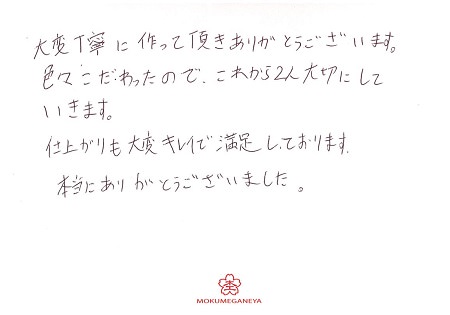 大変丁寧に作って頂きありがとうございます。
色々こだわったので、これから2人大切にして
いきます。
仕上がりも大変キレイで満足しております。
本当にありがとうございました。
MOKUMEGANEYA